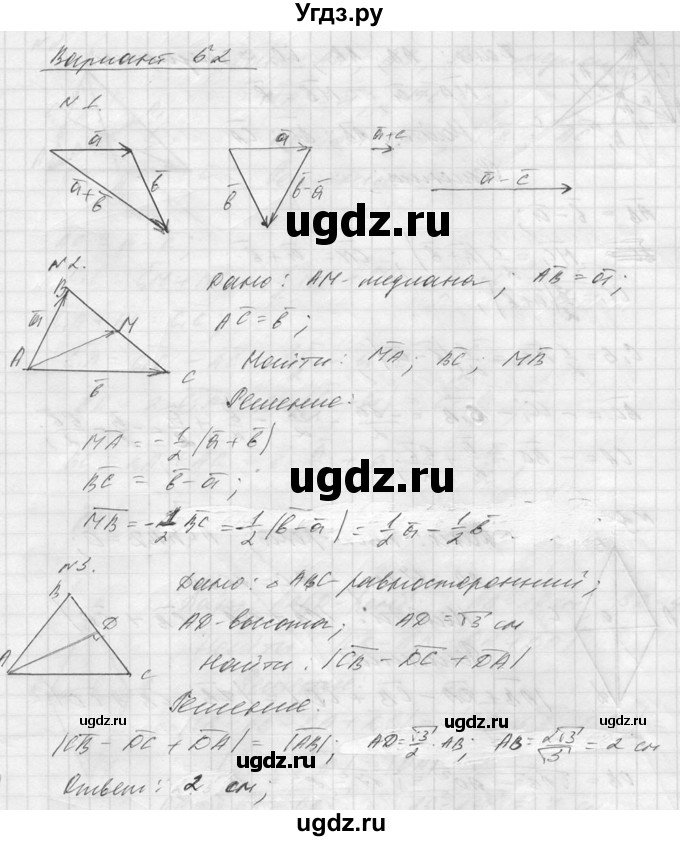 Угдз.ру
Вариант 62
№1.
a̅ a̅ a̅+c̅
a̅+b̅ b̅ b̅ b̅-a̅ a̅-c̅
ugdz.ru
№2.
Дано: AM-медиана; A̅B̅=a̅;
A̅C̅=b̅;
B a̅ M A C b̅
Найти: M̅A̅; B̅C̅; M̅B̅
Решение:
M̅A̅ = -1/2(a̅+b̅)
B̅C̅ = b̅-a̅;
ugdz.ru
M̅B̅ = -1/2 B̅C̅ = -1/2(b̅-a̅) = 1/2 a̅ - 1/2 b̅.
№3.
Дано: △ABC-равносторонний;
B D A C
AD-высота; AD=√3 см
Найти: |C̅B̅ - D̅C̅ + D̅A̅|
Решение:
ugdz.ru ugdz.ru
|C̅B̅ - D̅C̅ + D̅A̅| = |A̅B̅|; AD=√3/2·AB; AB=2√3/√3=2 см
ugdz.ru
Ответ: 2 см;
ugdz.ru